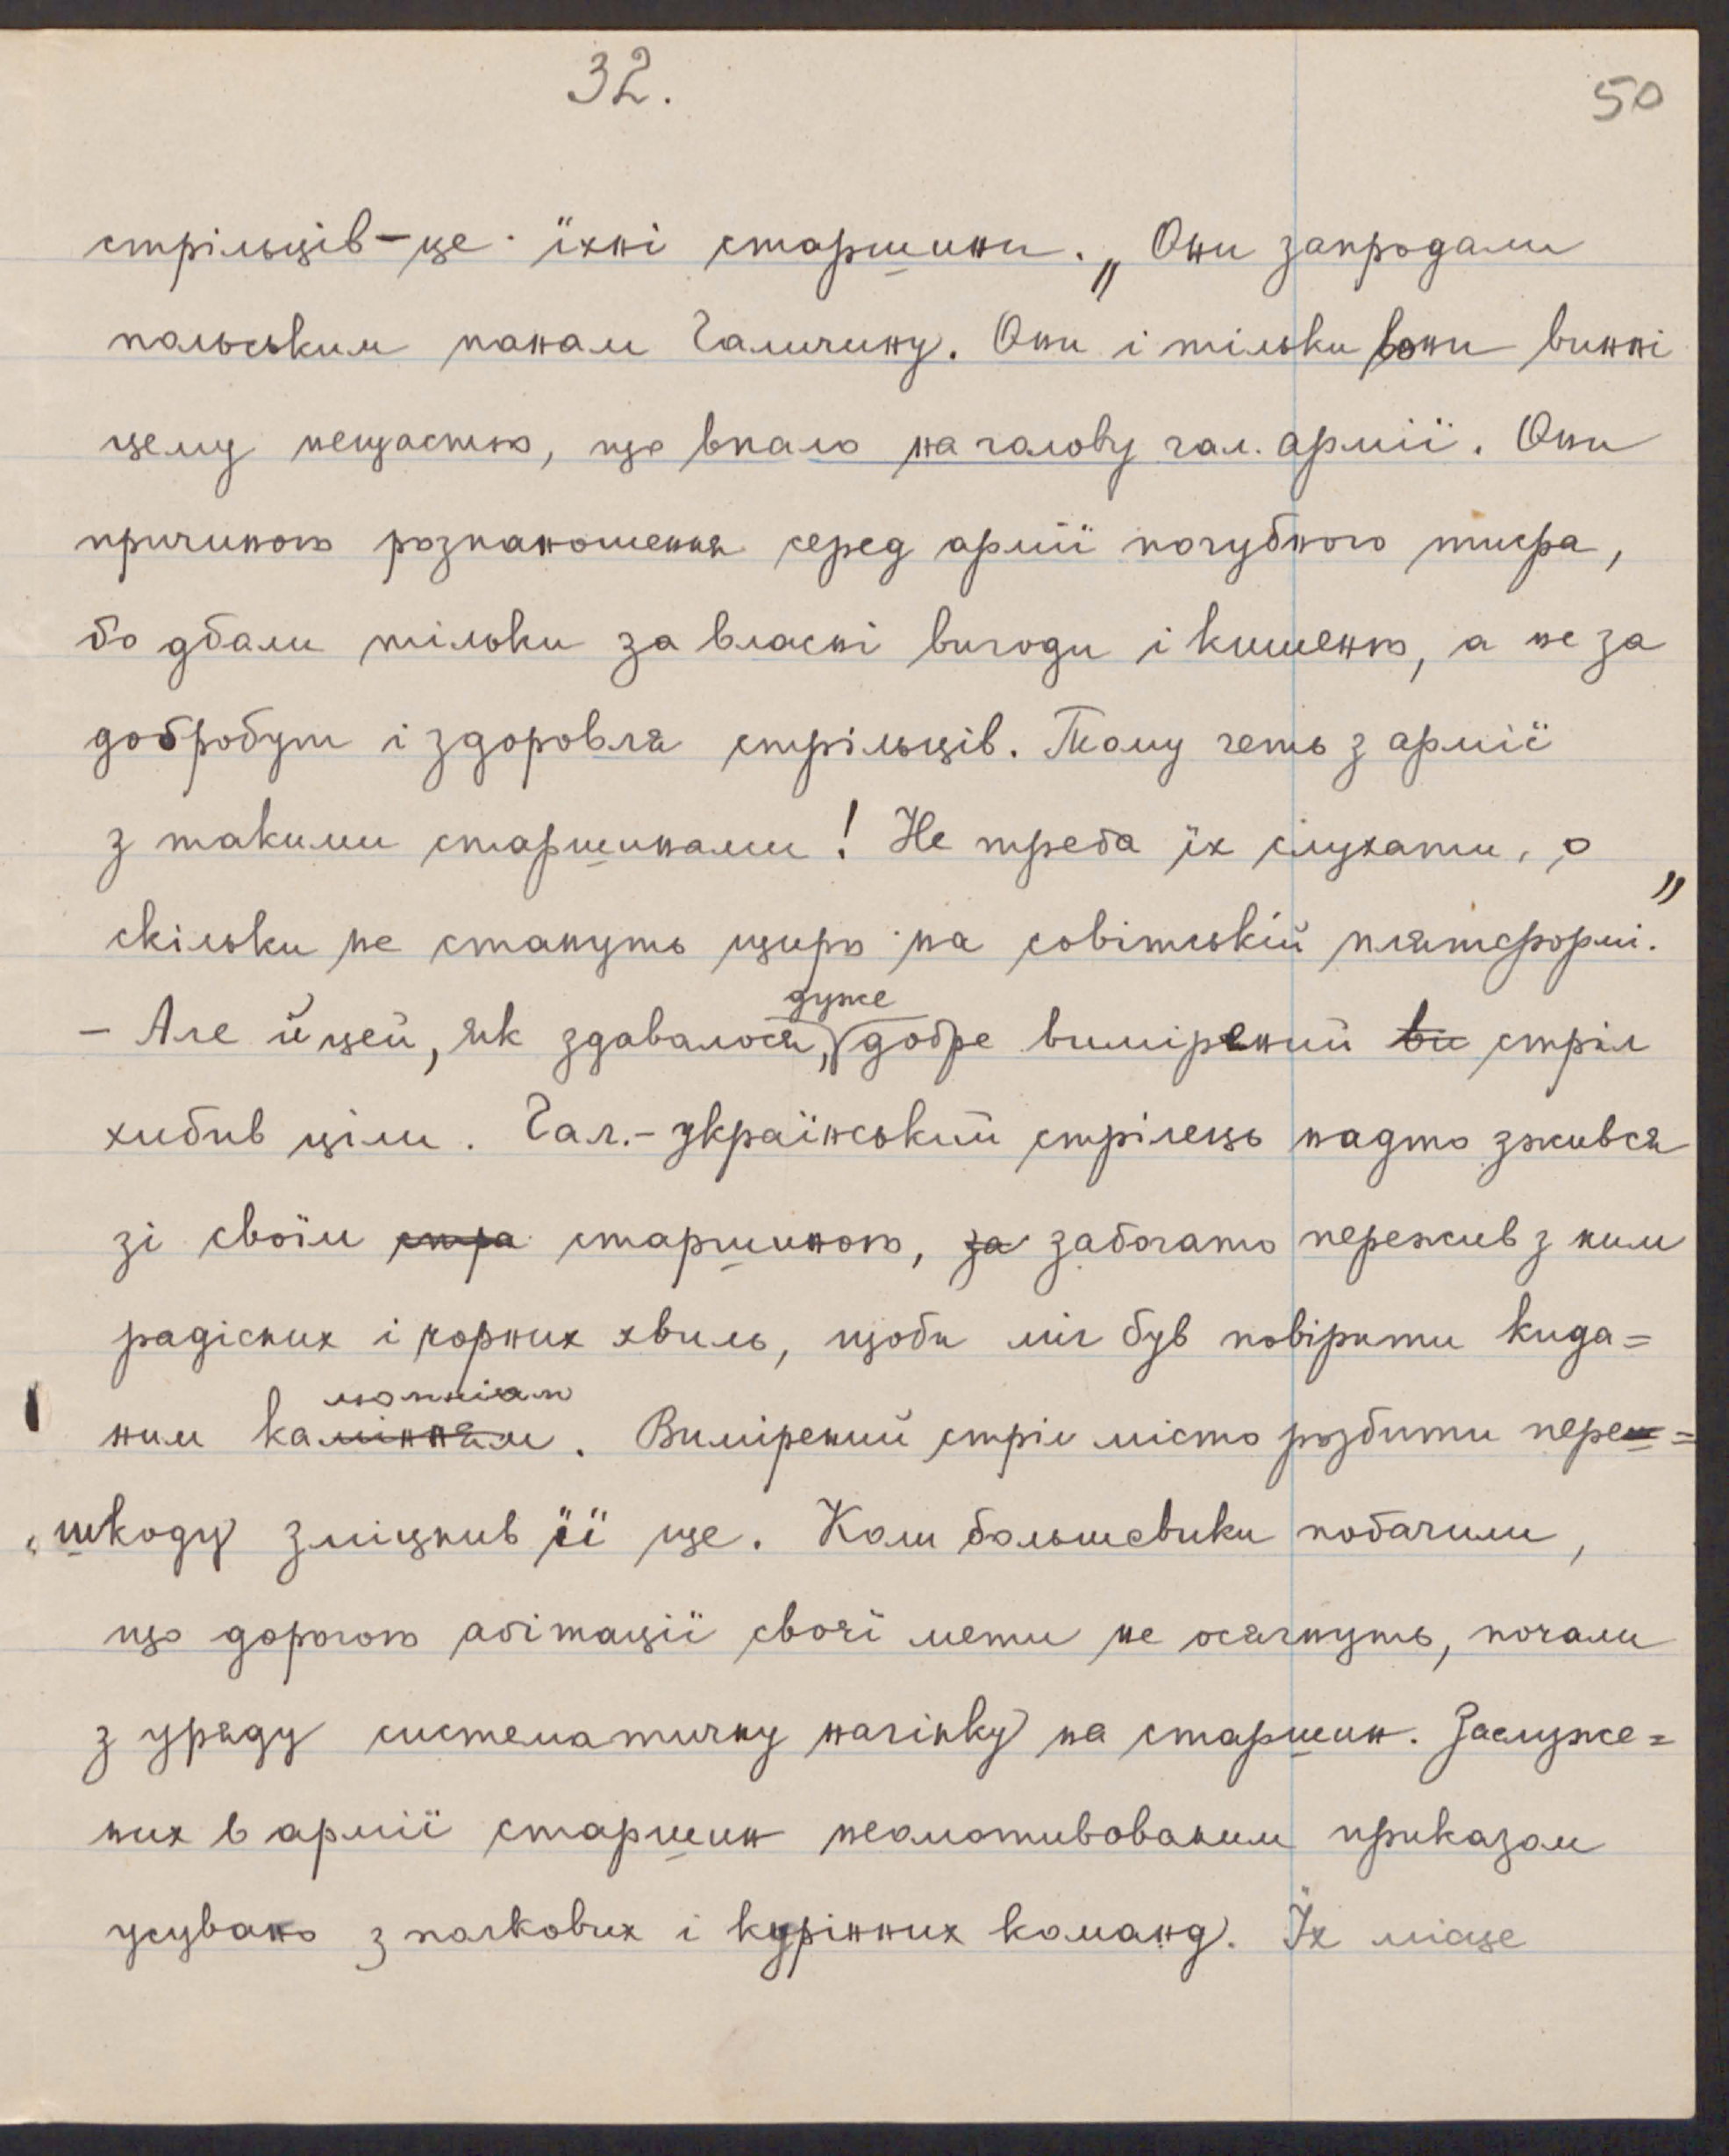 32.
50
стрільців – це їхні старшини. „Они запродали
польським панам Галичину. Они і тільки вони винні
цему нещастю, що впало на голову гал. армії. Они
причиною розпаношення серед армії погубного тифа,
бо дбали тільки за власні вигоди і кишеню, а не за
добробут і здоровля стрільців. Тому геть з армії
з такими старшинами! Не треба їх слухати, о
скільки не стануть щиро на совітській плятформі."
– Але й цей, як здавалося, дуже добре вимірений ви стріл
хибив ціли. Гал.-український стрілець надто зжився
зі своїм стра старшиною, за забогато пережив з ним
радісних і чорних хвиль, щоби міг був повірити кида=
ним калюмніям. Вимірений стріл місто розбити пере=
шкоду зміцнив її ще. Коли большевики побачили,
що дорогою агітації своєї мети не осягнуть, почали
з уряду систематичну нагінку на старшин. Заслуже=
них в армії старшин неомотивованим приказом
усувано з полкових і курінних команд. Їх місце